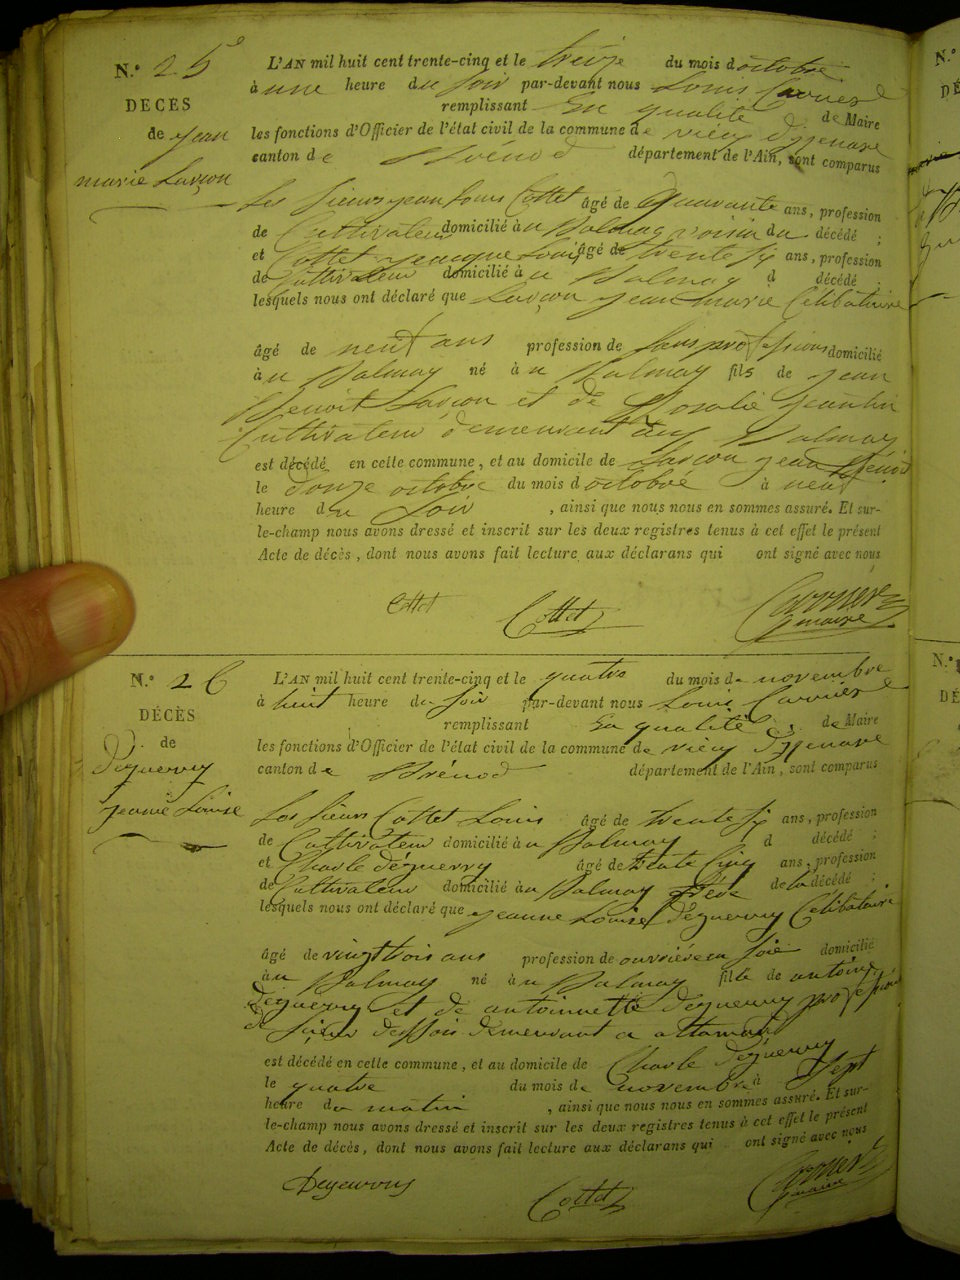 N.º 25e
DECÈS
de jean
marie Lançon
L'AN mil huit cent trente-cinq et le treize du mois d octobre
à une heure du soir par-devant nous Louis Carrier
remplissant En qualité de Maire
les fonctions d'Officier de l'état civil de la commune de vieu d'izenave
canton de Brénod département de l'Ain, sont comparus
Les sieurs jean Louis Cottet âgé de quarante ans, profession
de Cultivateur domicilié à u Balmay voisin du décédé ;
et Cottet jacque Louis âgé de trente six ans, profession
de Cultivateur domicilié à u Balmay d décédé ;
lesquels nous ont déclaré que Lançon jean marie Célibataire
âgé de neuf ans profession de sans profession domicilié
à u Balmay né à u Balmay fils de jean
Benoit Lançon et de Rosalie jeantin
Cultivateur demeurant au Balmay
est décédé en cette commune, et au domicile de Lançon jean Benoit
le donze octobre du mois d octobre à neuf
heure du soir , ainsi que nous nous en sommes assuré. Et sur-
le-champ nous avons dressé et inscrit sur les deux registres tenus à cet effet le présent
Acte de décès, dont nous avons fait lecture aux déclarans qui ont signé avec nous
Cottet Cottet Carrier
maire
N.º 26
DÉCÈS
de
Déguerry
jeanne Louise
L'AN mil huit cent trente-cinq et le quatre du mois de novembre
à huit heure du soir par-devant nous Louis Carrier
remplissant En qualité de Maire
les fonctions d'Officier de l'état civil de la commune de vieu d'izenave
canton de Brénod département de l'Ain, sont comparus
Les sieurs Cottet Louis âgé de trente six ans, profession
de Cultivateur domicilié à u Balmay d décédé ;
et Charle déguerry âgé de trente Cinq ans, profession
de Cultivateur domicilié à u Balmay frère de la décédé ;
lesquels nous ont déclaré que jeanne Louise déguerry Célibataire
âgé de vingt trois ans profession de ouvrière en soie domicilié
à u Balmay né à u Balmay fille de antoine
déguerry et de antoinette déguerry profession
de demeurant a
est décédé en cette commune, et au domicile de Charle déguerry
le quatre du mois de novembre à sept
heure du matin , ainsi que nous nous en sommes assuré. Et sur-
le-champ nous avons dressé et inscrit sur les deux registres tenus à cet effet le présent
Acte de décès, dont nous avons fait lecture aux déclarans qui ont signé avec nous
Cottet Carrier
maire